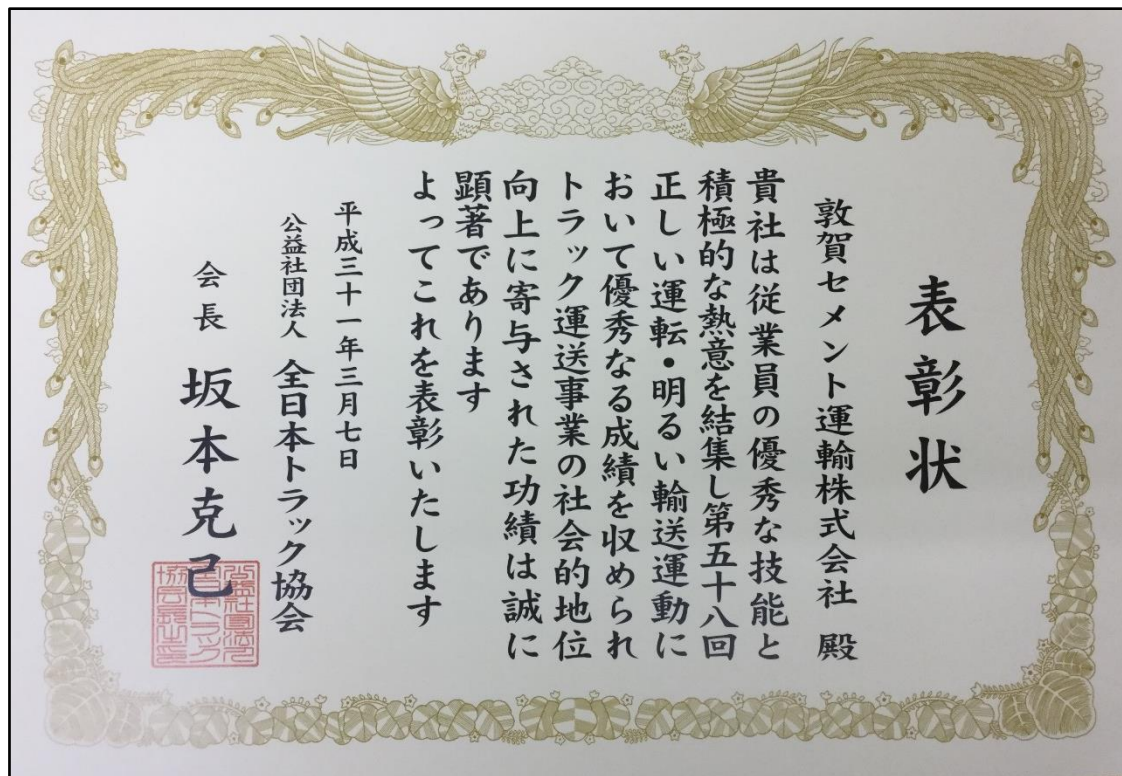 表彰状
敦賀セメント運輸株式会社 殿
貴社は従業員の優秀な技能と
積極的な熱意を結集し第五十八回
正しい運転・明るい輸送運動に
おいて優秀なる成績を収められ
トラック運送事業の社会的地位
向上に寄与された功績は誠に
顕著であります
よってこれを表彰いたします
平成三十一年三月七日
公益社団法人 全日本トラック協会
会長 坂本克己
公益社団法人
全日本トラック
協会長之印